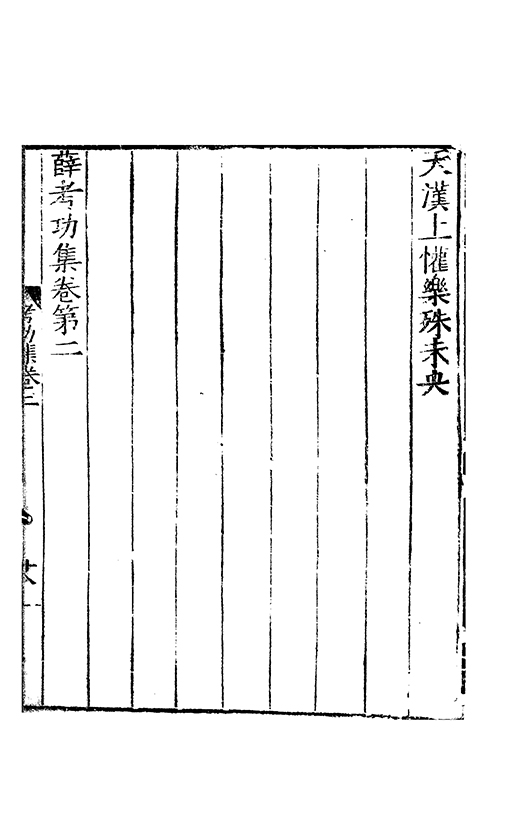 天漢上懽樂殊未央
薛考功集卷第二
考功集卷二